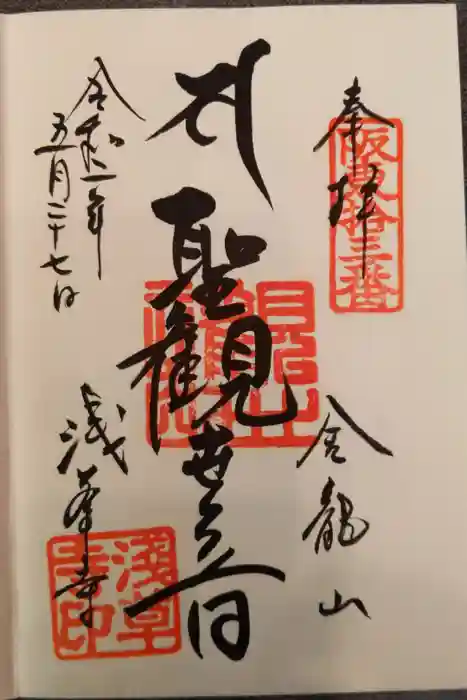 奉拝
坂東拾三番
金龍山
聖観世音
令和一年
五月二十七日
浅草寺
浅草寺印